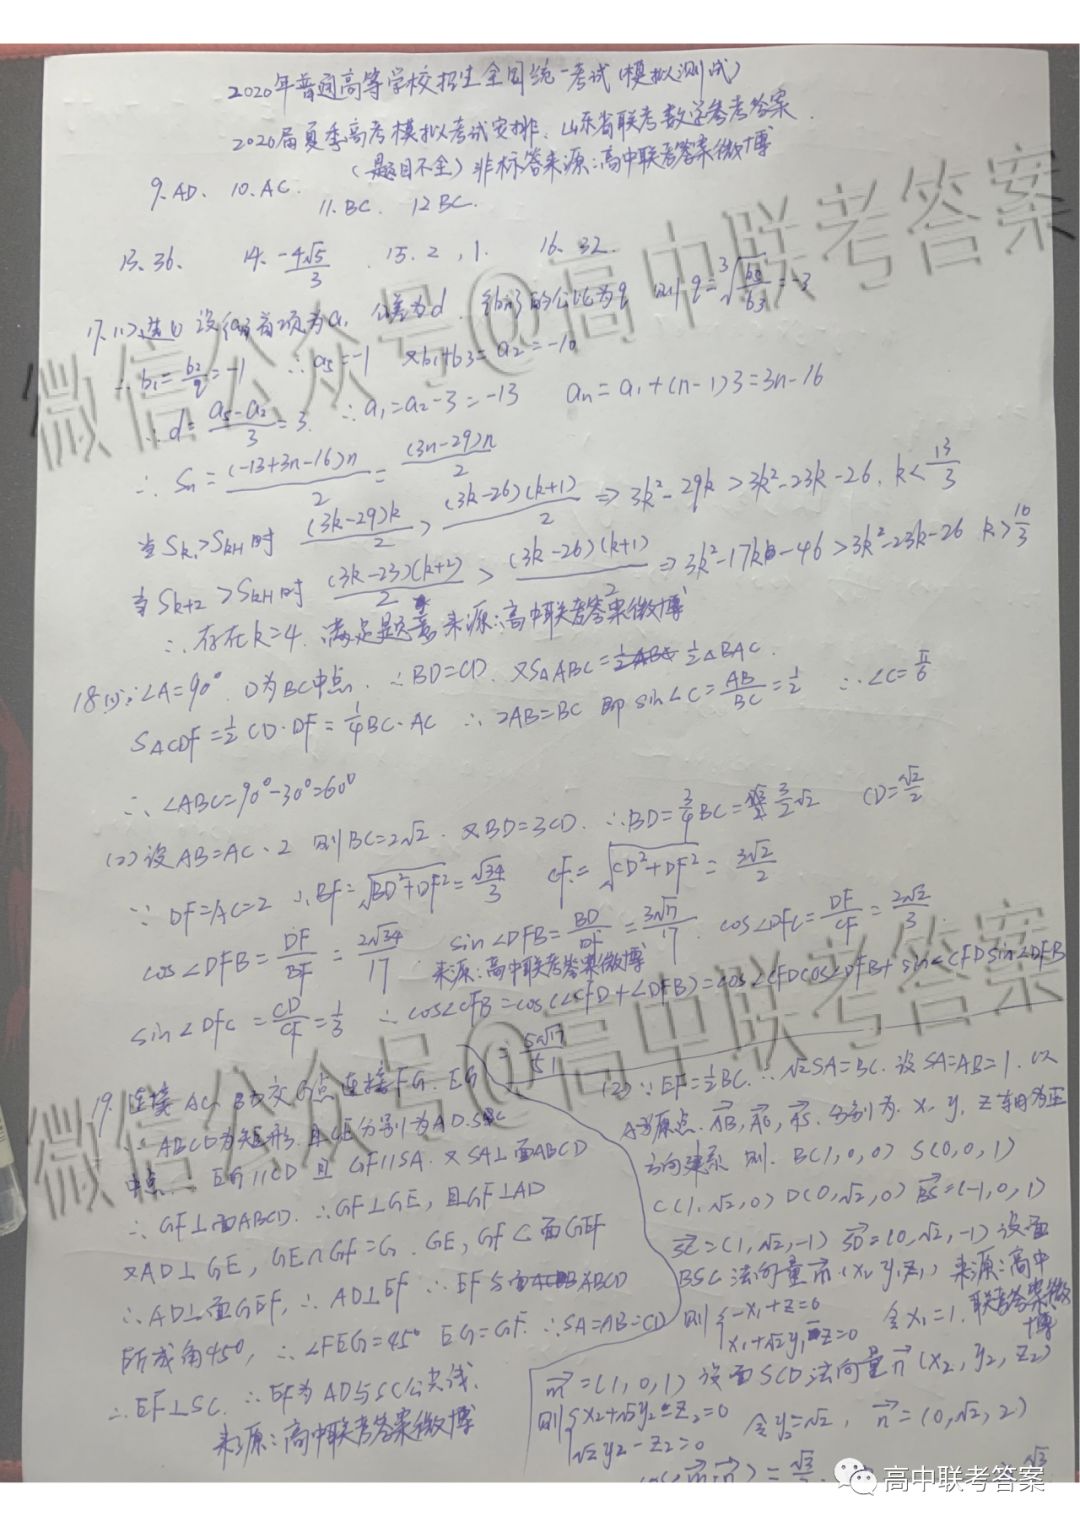 2020年普通高等学校招生全国统一考试(模拟测试)
2020届夏季高考模拟考试安排、山东省联考数学参考答案
(题目不全)非标答来源:高中联考答案微博
9.AD、 10.AC.
11.BC. 12 BC.
13、36、 14、-4√5/3 . 15.2,1. 16、32.
17.(1)选① 设{an}首项为a1 公差为d. {bn}的公比为q 则q=³√(b6/b3)=-3
∴b1=b2/q=-1 ∴a5=-1 又b1+b3=a2=-10
∴d=(a5-a2)/3=3. ∴a1=a2-3=-13 an=a1+(n-1)3=3n-16
∴Sn=(-13+3n-16)n/2=(3n-29)n/2
当Sk>Sk+1时 (3k-29)k/2>(3k-26)(k+1)/2⇒3k²-29k>3k²-23k-26. k<13/3
当Sk+2>Sk+1时 (3k-23)(k+2)/2>(3k-26)(k+1)/2⇒3k²-17k-46>3k²-23k-26 k>10/3
∴存在k=4.满足题意 来源:高中联考答案微博
18.(1)∵∠A=90° D为BC中点.∴BD=CD. 又S△ABC=½AB·½△BAC.
S△CDF=½CD·DF=¼BC·AC ∴2AB=BC 即sin∠C=AB/BC=½ ∴∠C=π/6
∴∠ABC=90°-30°=60°
(2)设AB=AC、2 则BC=2√2.又BD=3CD.∴BD=¾BC=3/2√2 CD=√2/2
∵DF=AC=2 ∴BF=√(BD²+DF²)=√34/3 CF=√(CD²+DF²)=3√2/2
cos∠DFB=DF/BF=2√34/17 sin∠DFB=BD/DF=3√17/17. cos∠DFC=DF/CF=2√2/3.
来源:高中联考答案微博
sin∠DFC=CD/CF=1/3 ∴cos∠CFB=cos(∠CFD+∠DFB)=cos∠CFDcos∠DFB+sin∠CFDsin∠DFB
=5√17/51
19.连接AC、BD交G点连接FG.EG
∵ABCD为矩形.且 分别为AD.SC
中点.∴EG//CD且GF//SA.又SA⊥面ABCD
∴GF⊥面ABCD.∴GF⊥GE,且GF⊥AD
又AD⊥GE,GE∩GF=G.GE,GF⊂面GEF
∴AD⊥面GEF,∴AD⊥EF ∴EF与面ABCD
所成角45°,∴∠FEG=45° EG=GF.∴SA=AB=CD
∴EF⊥SC.∴EF为AD与SC公共线.
来源:高中联考答案微博
(2)∵EF=½BC.∴√2SA=BC.设SA=AB=1.以
A为原点.AB,AD,AS.分别为.x,y,z轴为正
方向建系 则.B(1,0,0) S(0,0,1)
C(1,√2,0) D(0,√2,0) BS=(-1,0,1)
SC=(1,√2,-1) SD=(0,√2,-1)设面
BSC法向量m(x1,y1,z1) 来源:高中联考答案微博
则{-x1+z=0 x1+√2y1-z=0 令x1=1.
m=(1,0,1) 设面SCD法向量n(x2,y2,z2)
则{x2+√2y2-z2=0 √2y2-z2=0 令y2=√2, n=(0,√2,2)
cos<m·n>=√3/
微信公众号@高中联考答案
微信公众号@高中联考答案
高中联考答案